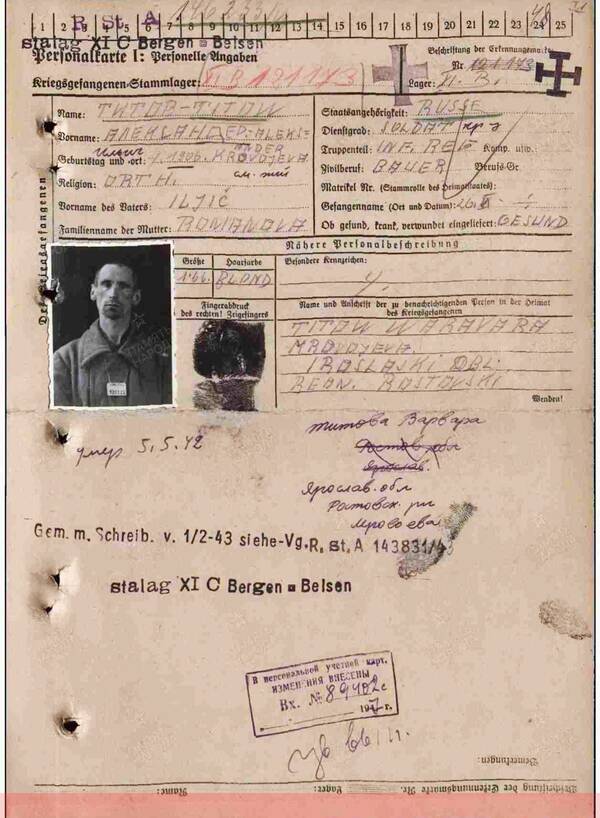 1 2 3 4 5 6 7 8 9 10 11 12 13 14 15 16 17 18 19 20 21 22 23 24 25
R St. A
stalag XI C Bergen = Belsen
Personalkarte I: Personelle Angaben
Beschriftung der Erkennungsmarke
Nr. 121173
Kriegsgefangenen-Stammlager: XI B 121173
Lager: XI. B.
Name: ТИТОВ-TITOW
Staatsangehörigkeit: RUSSE
Vorname: АЛЕКСАНДЕР-ALEKS=
ANDER
Dienstgrad: SOLDAT
Ильич
Truppenteil: INF. REG Komp. usw.
Geburtstag und -ort: 1906.
Zivilberuf: BAUER Berufs-Gr.
Religion: ORTH.
Matrikel Nr. (Stammrolle des Heimatstaates):
Vorname des Vaters: ILJIČ
Gefangennahme (Ort und Datum):
Familienname der Mutter: ROMANOVA
Ob gesund, krank, verwundet eingeliefert: GESUND
Des Kriegsgefangenen
Nähere Personalbeschreibung
Größe
Haarfarbe
Besondere Kennzeichen:
1.66.
BLOND
Fingerabdruck
des rechten! Zeigefingers
Name und Anschrift der zu benachrichtigenden Person in der Heimat
des Kriegsgefangenen
TITOW WARAVARA
MROVOJEVA.
IROSLASKI OBL.
REON. ROSTOVSKI
Wenden!
умер 5.5.42
Титова Варвара
Ростов. обл
Ярослав.
Ярослав. обл
Ростовск. рн
Мровоева
Gem. m. Schreib. v. 1/2-43 siehe-Vg. R. St. A 143831/43
stalag XI C Bergen = Belsen
В персональной учетной карт.
ИЗМЕНЕНИЯ ВНЕСЕНЫ
Вх. № 89402с
197 г.
Bemerkungen:
Beschriftung der Erkennungsmarke Nr.
Lager:
Name: